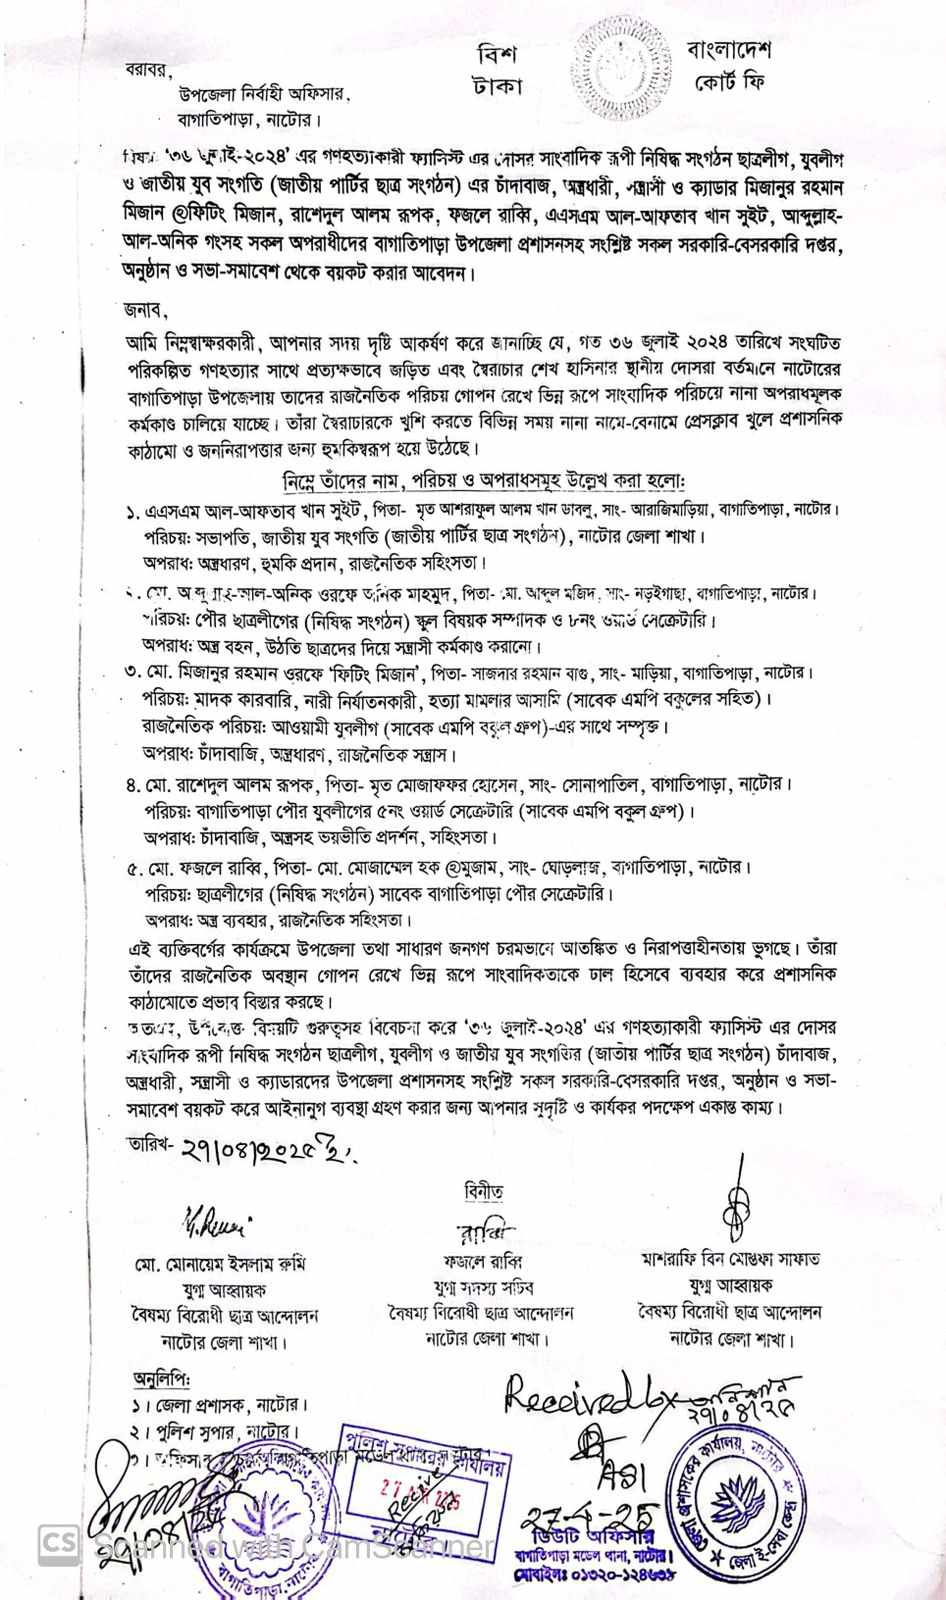 বিশ
টাকা
বাংলাদেশ
কোর্ট ফি
বরাবর,
উপজেলা নির্বাহী অফিসার,
বাগাতিপাড়া, নাটোর।
বিষয়: ‘৩৬ জুলাই-২০২৪’ এর গণহত্যাকারী ফ্যাসিস্ট এর দোসর সাংবাদিক রূপী নিষিদ্ধ সংগঠন ছাত্রলীগ, যুবলীগ
ও জাতীয় যুব সংগতি (জাতীয় পার্টির ছাত্র সংগঠন) এর চাঁদাবাজ, অস্ত্রধারী, সন্ত্রাসী ও ক্যাডার মিজানুর রহমান
মিজান @ফিটিং মিজান, রাশেদুল আলম রূপক, ফজলে রাব্বি, এএসএম আল-আফতাব খান সুইট, আব্দুল্লাহ-
আল-অনিক গংসহ সকল অপরাধীদের বাগাতিপাড়া উপজেলা প্রশাসনসহ সংশ্লিষ্ট সকল সরকারি-বেসরকারি দপ্তর,
অনুষ্ঠান ও সভা-সমাবেশ থেকে বয়কট করার আবেদন।
জনাব,
আমি নিম্নস্বাক্ষরকারী, আপনার সদয় দৃষ্টি আকর্ষণ করে জানাচ্ছি যে, গত ৩৬ জুলাই ২০২৪ তারিখে সংঘটিত
পরিকল্পিত গণহত্যার সাথে প্রত্যক্ষভাবে জড়িত এবং স্বৈরাচার শেখ হাসিনার স্থানীয় দোসরা বর্তমানে নাটোরের
বাগাতিপাড়া উপজেলায় তাদের রাজনৈতিক পরিচয় গোপন রেখে ভিন্ন রূপে সাংবাদিক পরিচয়ে নানা অপরাধমূলক
কর্মকাণ্ড চালিয়ে যাচ্ছে। তাঁরা স্বৈরাচারকে খুশি করতে বিভিন্ন সময় নানা নামে-বেনামে প্রেসক্লাব খুলে প্রশাসনিক
কাঠামো ও জননিরাপত্তার জন্য হুমকিস্বরূপ হয়ে উঠেছে।
নিম্নে তাঁদের নাম, পরিচয় ও অপরাধসমূহ উল্লেখ করা হলো:
১. এএসএম আল-আফতাব খান সুইট, পিতা- মৃত আশরাফুল আলম খান ডাবলু, সাং- আরাজিমাড়িয়া, বাগাতিপাড়া, নাটোর।
পরিচয়: সভাপতি, জাতীয় যুব সংগতি (জাতীয় পার্টির ছাত্র সংগঠন), নাটোর জেলা শাখা।
অপরাধ: অস্ত্রধারণ, হুমকি প্রদান, রাজনৈতিক সহিংসতা।
২. মো. আব্দুল্লাহ-আল-অনিক ওরফে অনিক মাহমুদ, পিতা- মো. আব্দুল মজিদ, সাং- নড়ইগাছা, বাগাতিপাড়া, নাটোর।
পরিচয়: পৌর ছাত্রলীগের (নিষিদ্ধ সংগঠন) স্কুল বিষয়ক সম্পাদক ও ৮নং ওয়ার্ড সেক্রেটারি।
অপরাধ: অস্ত্র বহন, উঠতি ছাত্রদের দিয়ে সন্ত্রাসী কর্মকাণ্ড করানো।
৩. মো. মিজানুর রহমান ওরফে ‘ফিটিং মিজান’, পিতা- সাজদার রহমান বাণ্ড, সাং- মাড়িয়া, বাগাতিপাড়া, নাটোর।
পরিচয়: মাদক কারবারি, নারী নির্যাতনকারী, হত্যা মামলার আসামি (সাবেক এমপি বকুলের সহিত)।
রাজনৈতিক পরিচয়: আওয়ামী যুবলীগ (সাবেক এমপি বকুল গ্রুপ)-এর সাথে সম্পৃক্ত।
অপরাধ: চাঁদাবাজি, অস্ত্রধারণ, রাজনৈতিক সন্ত্রাস।
৪. মো. রাশেদুল আলম রূপক, পিতা- মৃত মোজাফফর হোসেন, সাং- সোনাপাতিল, বাগাতিপাড়া, নাটোর।
পরিচয়: বাগাতিপাড়া পৌর যুবলীগের ৫নং ওয়ার্ড সেক্রেটারি (সাবেক এমপি বকুল গ্রুপ)।
অপরাধ: চাঁদাবাজি, অস্ত্রসহ ভয়ভীতি প্রদর্শন, সহিংসতা।
৫. মো. ফজলে রাব্বি, পিতা- মো. মোজাম্মেল হক @মুজাম, সাং- ঘোড়লাজ, বাগাতিপাড়া, নাটোর।
পরিচয়: ছাত্রলীগের (নিষিদ্ধ সংগঠন) সাবেক বাগাতিপাড়া পৌর সেক্রেটারি।
অপরাধ: অস্ত্র ব্যবহার, রাজনৈতিক সহিংসতা।
এই ব্যক্তিবর্গের কার্যক্রমে উপজেলা তথা সাধারণ জনগণ চরমভাবে আতঙ্কিত ও নিরাপত্তাহীনতায় ভুগছে। তাঁরা
তাঁদের রাজনৈতিক অবস্থান গোপন রেখে ভিন্ন রূপে সাংবাদিকতাকে ঢাল হিসেবে ব্যবহার করে প্রশাসনিক
কাঠামোতে প্রভাব বিস্তার করছে।
অতএব, উপরোক্ত বিষয়টি গুরুত্বসহ বিবেচনা করে ‘৩৬ জুলাই-২০২৪’ এর গণহত্যাকারী ফ্যাসিস্ট এর দোসর
সাংবাদিক রূপী নিষিদ্ধ সংগঠন ছাত্রলীগ, যুবলীগ ও জাতীয় যুব সংগতির (জাতীয় পার্টির ছাত্র সংগঠন) চাঁদাবাজ,
অস্ত্রধারী, সন্ত্রাসী ও ক্যাডারদের উপজেলা প্রশাসনসহ সংশ্লিষ্ট সকল সরকারি-বেসরকারি দপ্তর, অনুষ্ঠান ও সভা-
সমাবেশ বয়কট করে আইনানুগ ব্যবস্থা গ্রহণ করার জন্য আপনার সুদৃষ্টি ও কার্যকর পদক্ষেপ একান্ত কাম্য।
তারিখ- ২৭/০৪/২০২৫ ইং
বিনীত
রাব্বি
মো. মোনায়েম ইসলাম রুমি
যুগ্ম আহ্বায়ক
বৈষম্য বিরোধী ছাত্র আন্দোলন
নাটোর জেলা শাখা।
ফজলে রাব্বি
যুগ্ম সদস্য সচিব
বৈষম্য বিরোধী ছাত্র আন্দোলন
নাটোর জেলা শাখা।
মাশরাফি বিন মোস্তফা সাফাত
যুগ্ম আহ্বায়ক
বৈষম্য বিরোধী ছাত্র আন্দোলন
নাটোর জেলা শাখা।
অনুলিপি:
১। জেলা প্রশাসক, নাটোর।
২। পুলিশ সুপার, নাটোর।
৩। অফিসার বাগাতিপাড়া মডেল থানা, নাটোর।
Received by
২৭/০৪/২৫
ASI
27-4-25
ডিউটি অফিসার
বাগাতিপাড়া মডেল থানা, নাটোর।
মোবাইলঃ ০১৩২০-১২৪৬৩৯
পুলিশ সুপারের কার্যালয়
27 APR 2025
Receive
নাটোর
২৭/০৪/২৫
বাগাতিপাড়া, নাটোর
জেলা প্রশাসকের কার্যালয়, নাটোর
জেলা ই-সেবা কেন্দ্র
CS Scanned with CamScanner